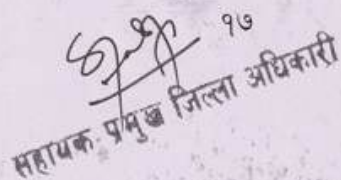 १७
सहायक प्रमुख जिल्ला अधिकारी